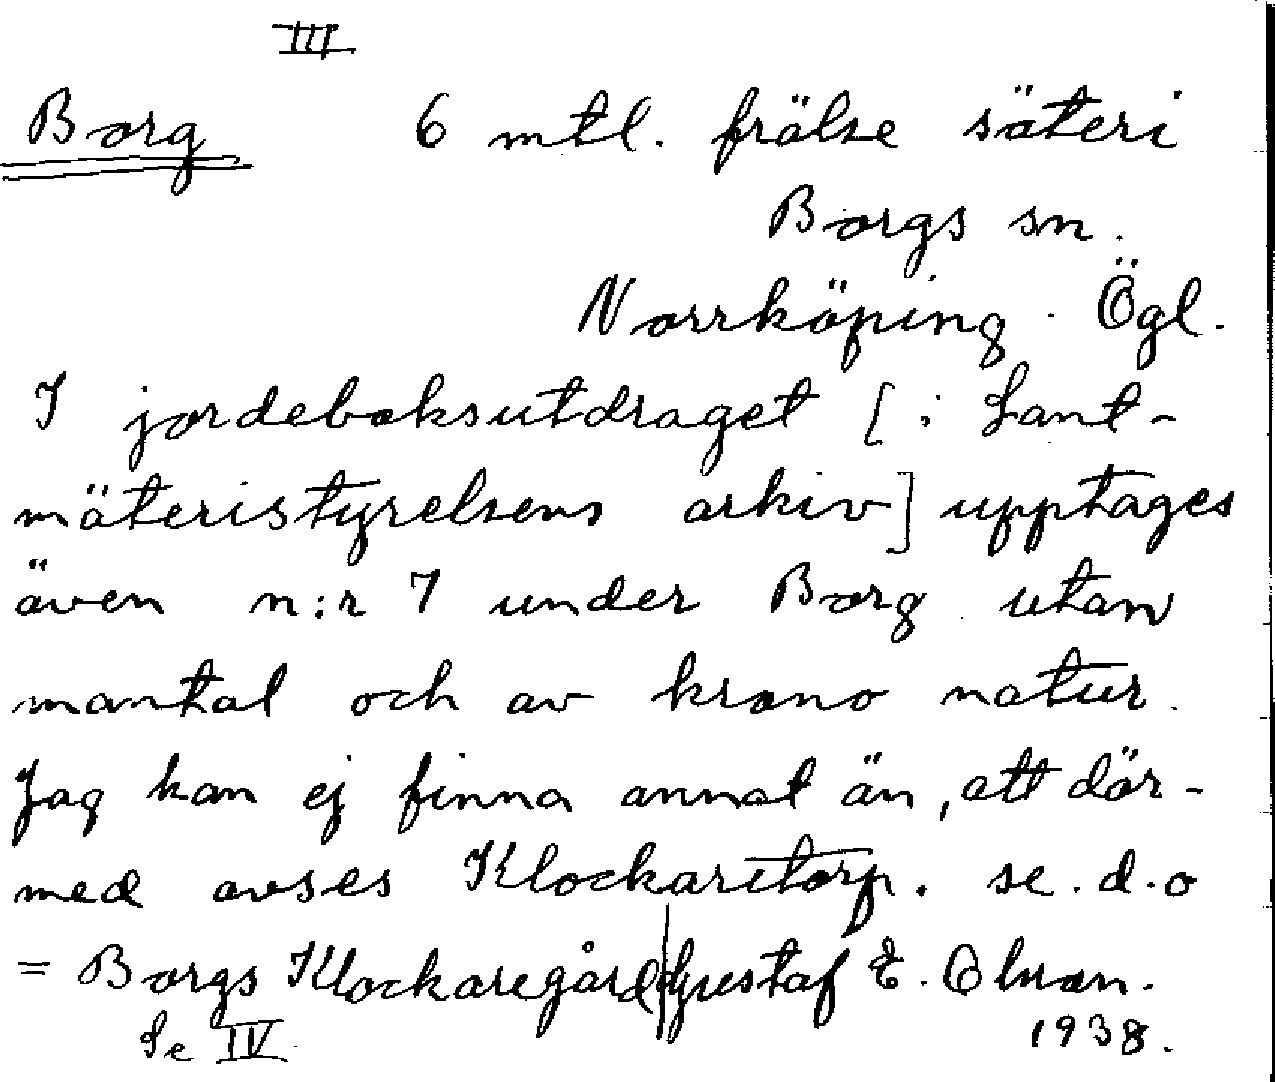 III
Borg 6 mtl. frälse säteri
Borgs sn.
Norrköping. Ögl.
I jordeboksutdraget [i Lant-
mäteristyrelsens arkiv] upptages
även n:r 7 under Borg utan
mantal och av krono natur.
Jag kan ej finna annat än, att där-
med avses Klockaretorp. se. d. o
= Borgs Klockaregård | Gustaf E.
Se IV 1938.